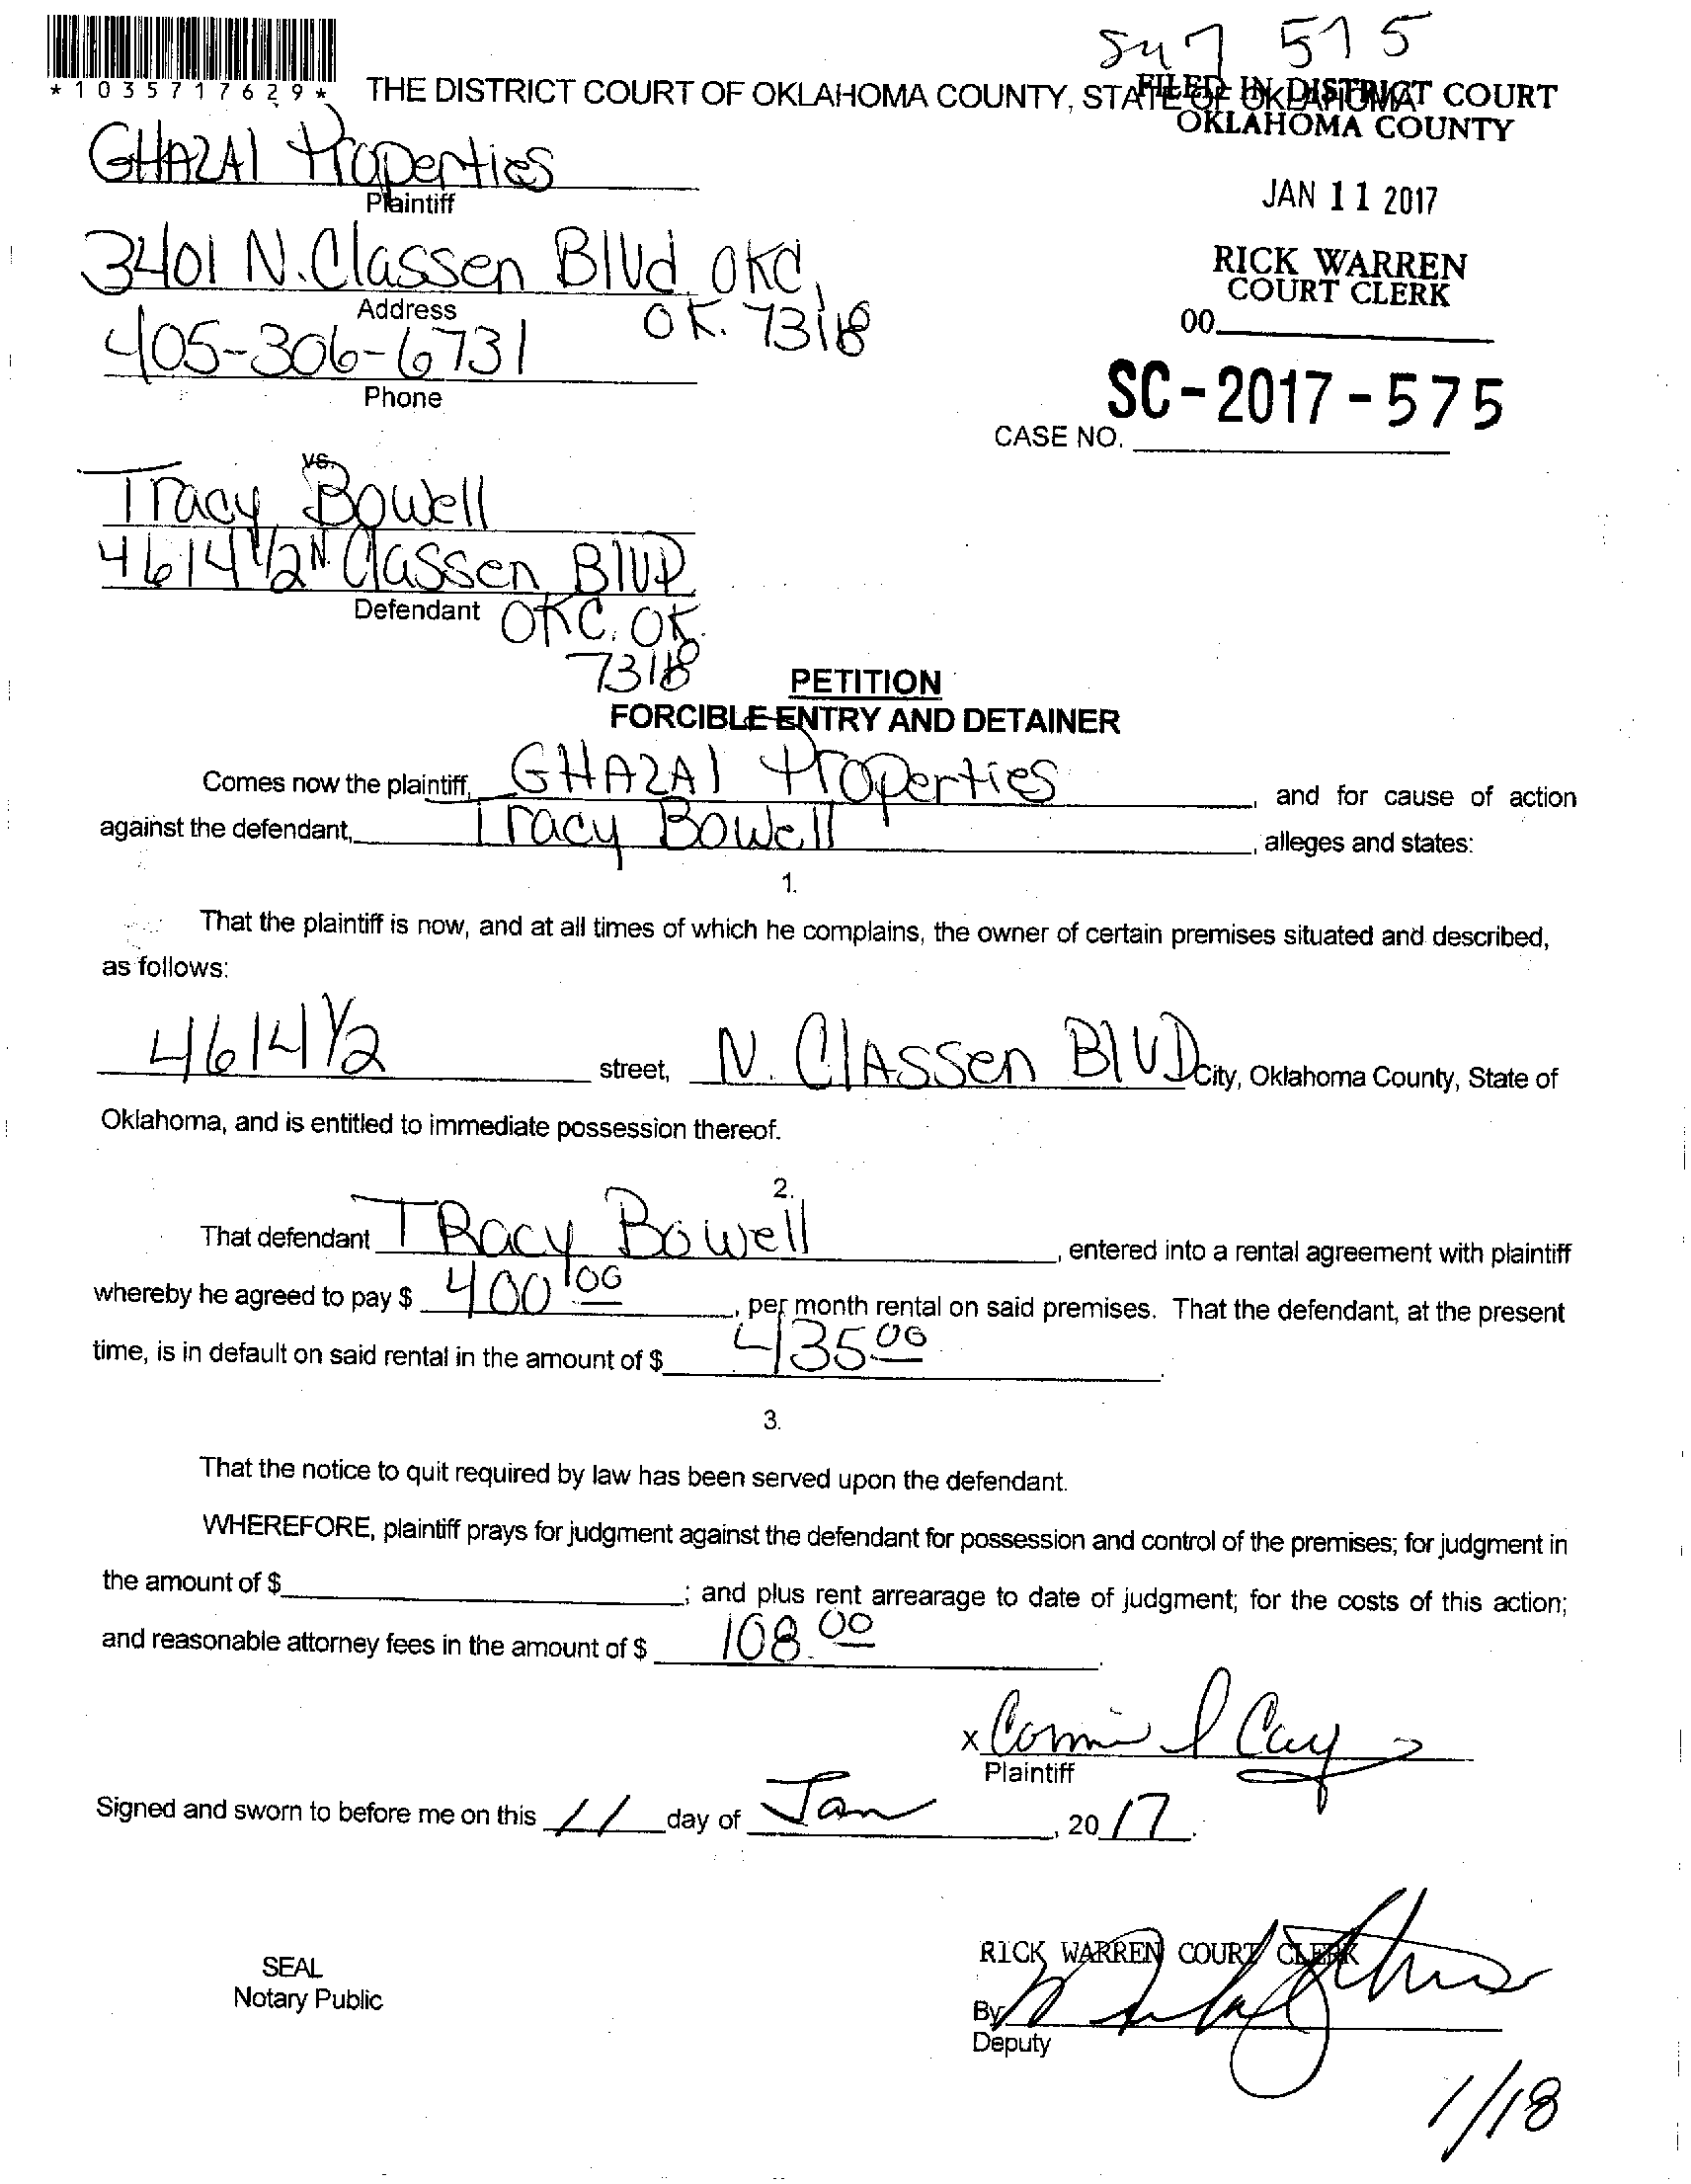 575
*1035717629*
THE DISTRICT COURT OF OKLAHOMA COUNTY, STATE OF OKLAHOMA
FILED IN DISTRICT COURT
OKLAHOMA COUNTY
GHAZAI Properties
Plaintiff
JAN 11 2017
3401 N. Classen Blvd. OKC,
RICK WARREN
COURT CLERK
Address
OK. 73118
00
405-306-6731
Phone
SC-2017-575
CASE NO.
vs.
Tracy Bowell
4614 1/2 N. Classen BlVD
Defendant
OKC. OK.
73118
PETITION
FORCIBLE ENTRY AND DETAINER
Comes now the plaintiff, GHAZAI Properties, and for cause of action
against the defendant, Tracy Bowell, alleges and states:
1.
That the plaintiff is now, and at all times of which he complains, the owner of certain premises situated and described,
as follows:
4614 1/2 street, N. ClASSen BlVD City, Oklahoma County, State of
Oklahoma, and is entitled to immediate possession thereof.
2.
That defendant TRacy Bowell, entered into a rental agreement with plaintiff
whereby he agreed to pay $ 400.00, per month rental on said premises. That the defendant, at the present
time, is in default on said rental in the amount of $ 435.00.
3.
That the notice to quit required by law has been served upon the defendant.
WHEREFORE, plaintiff prays for judgment against the defendant for possession and control of the premises; for judgment in
the amount of $ ; and plus rent arrearage to date of judgment; for the costs of this action;
and reasonable attorney fees in the amount of $ 108.00.
x
Plaintiff
Signed and sworn to before me on this 11 day of Jan, 2017.
RICK WARREN COURT CLERK
SEAL
Notary Public
By
Deputy
1/18